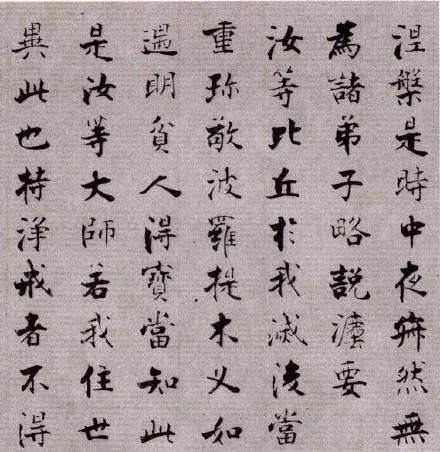 涅槃是時中夜寂然無
為諸弟子略說灋要
汝等比丘於我滅後當
重珎敬波羅提木叉如
遇明貧人得寶當知此
是汝等大師若我住世
異此也持淨戒者不得